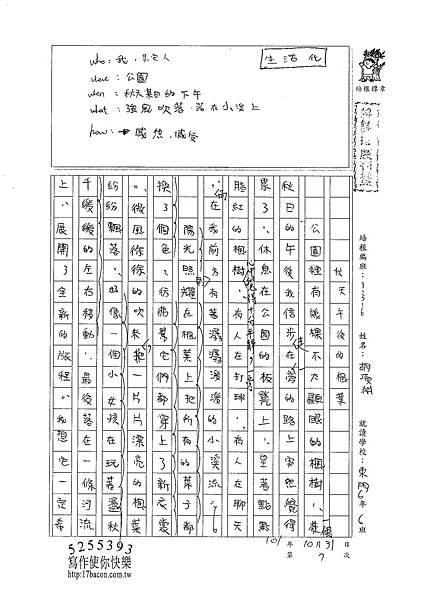 生活化
who:我,其它人
where:公園
when:秋天某日的下午
what:強風吹落,落在小溪上
how:感想,感受
培根標章
培根編班:33316
姓名:
就讀學校:東門6年6班
101年10月31日
第7次
秋天午後的楓葉
公園裡有幾棵不太顯眼的楓樹,一個
秋日的午後我信步走在旁的路上突然覺得
累了,休息在公園的板凳上,望著點點
胭紅的楓樹,有人在打球,有人在聊天
,在我前方有著潺潺流淺的小溪流
陽光照耀在楓葉上把所有的葉子都
換了個色,彷彿它們都穿上了新衣裳
,微風徐徐的吹來把一片片漂亮的楓葉
紛紛飄落,好像一個小女孩在玩盪秋
千緩緩的左右移動,最後落在一條河流
上,展開了全新的旅程,我想它一定希
5255393
寫作使你快樂
http://17bacon.com.tw